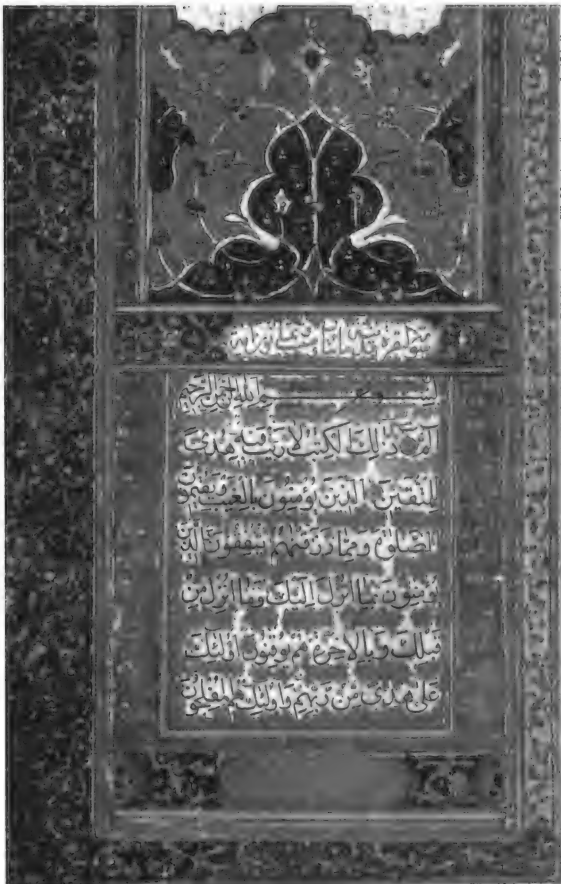 بسم الله الرحمن الرحيم
الم ذلك الكتب لا ريب فيه هدى
للمتقين الذين يؤمنون بالغيب ويقيمون
الصلوة ومما رزقنهم ينفقون والذين
يؤمنون بما انزل اليك وما انزل من
قبلك وبالاخرة هم يوقنون اولئك
على هدى من ربهم واولئك هم المفلحون